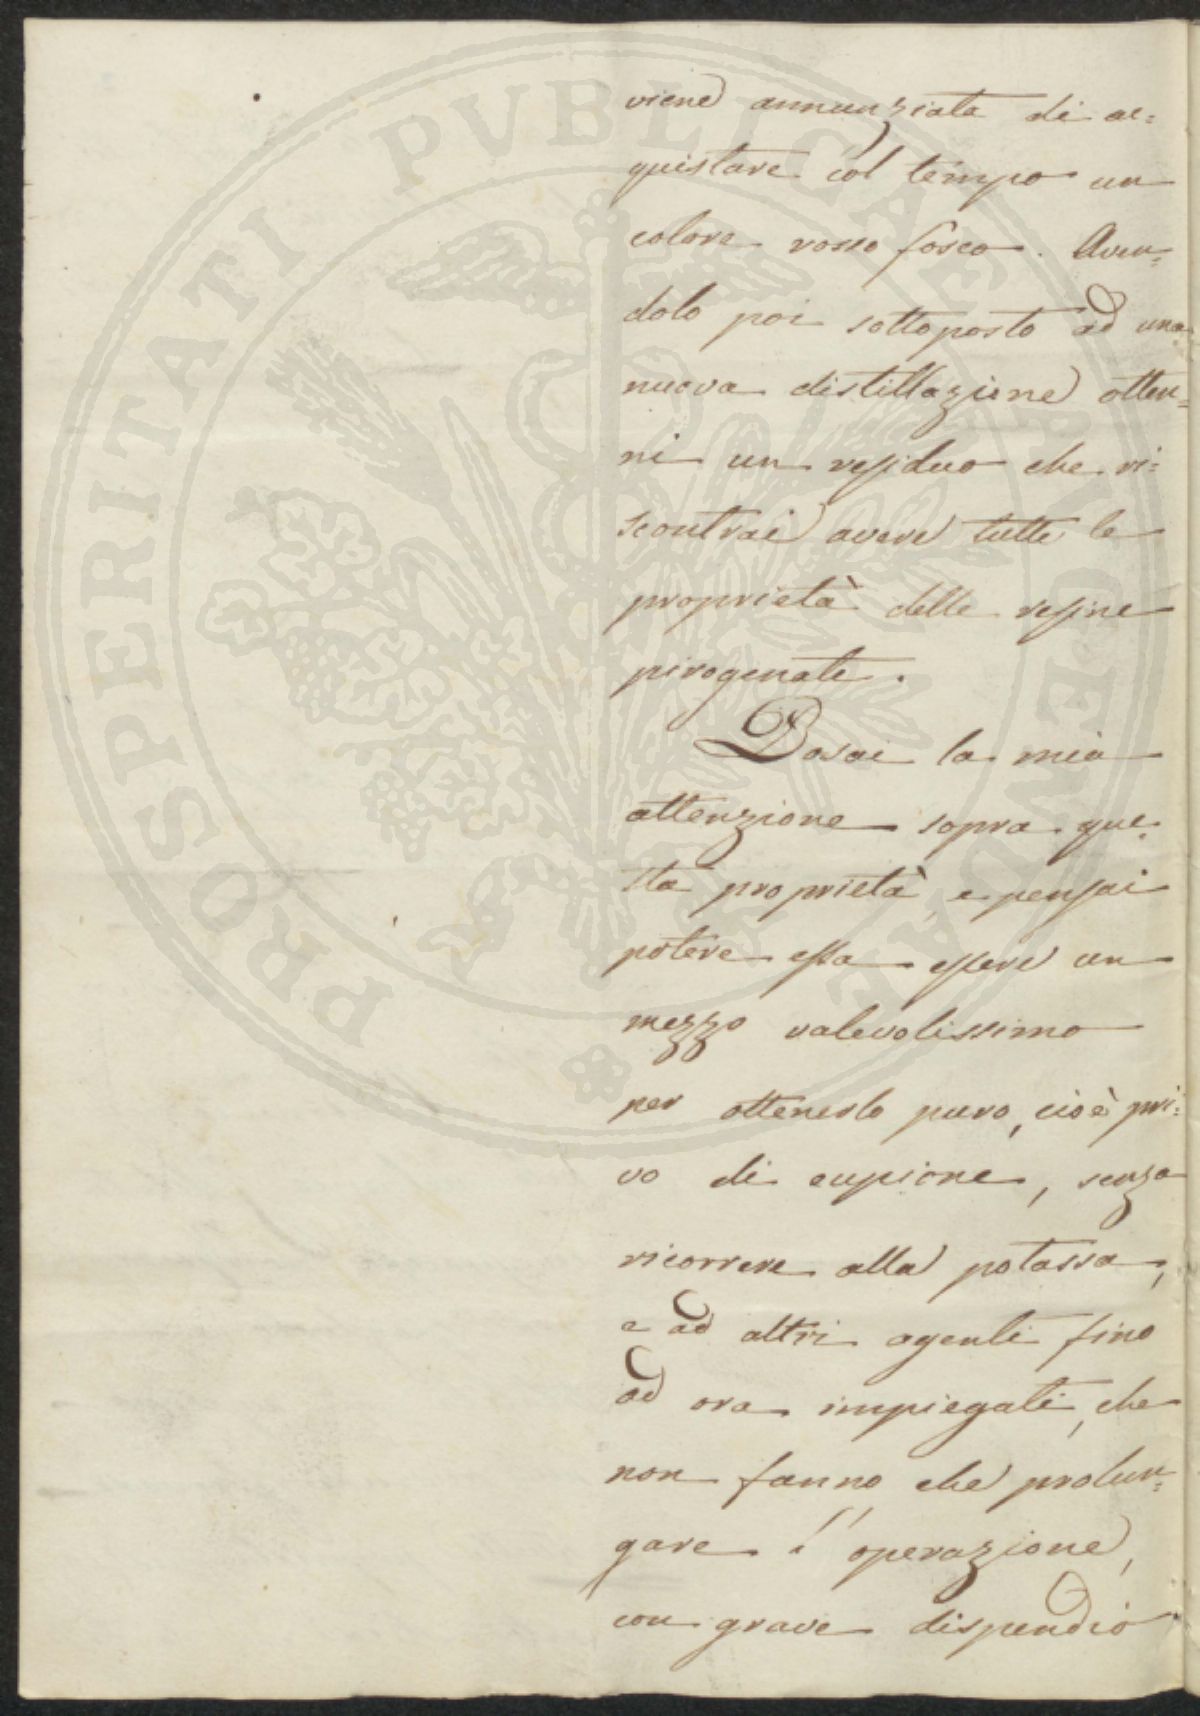 PROSPERITATI PVBLICAE AVGENDAE
viene annunziata di ac=
quistare col tempo un
colore rosso fosco. Aven=
dolo poi sottoposto ad una
nuova distillazione otten=
ni un residuo che ri=
scontrai avere tutte le
proprietà delle resine
pirogenate.
Posai la mia
attenzione sopra que=
sta proprietà, e pensai
potere essa essere un
mezzo valevolissimo
per ottenerlo puro, cioè pri=
vo di eupione, senza
ricorrere alla potassa,
e ad altri agenti fino
ad ora impiegati, che
non fanno che prolun=
gare l'operazione,
con grave dispendio